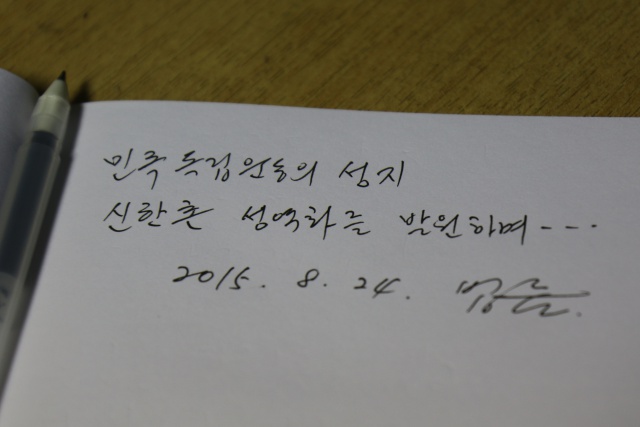 민족독립운동의 성지
신한촌 성역화를 발원하며---
2015. 8. 24.